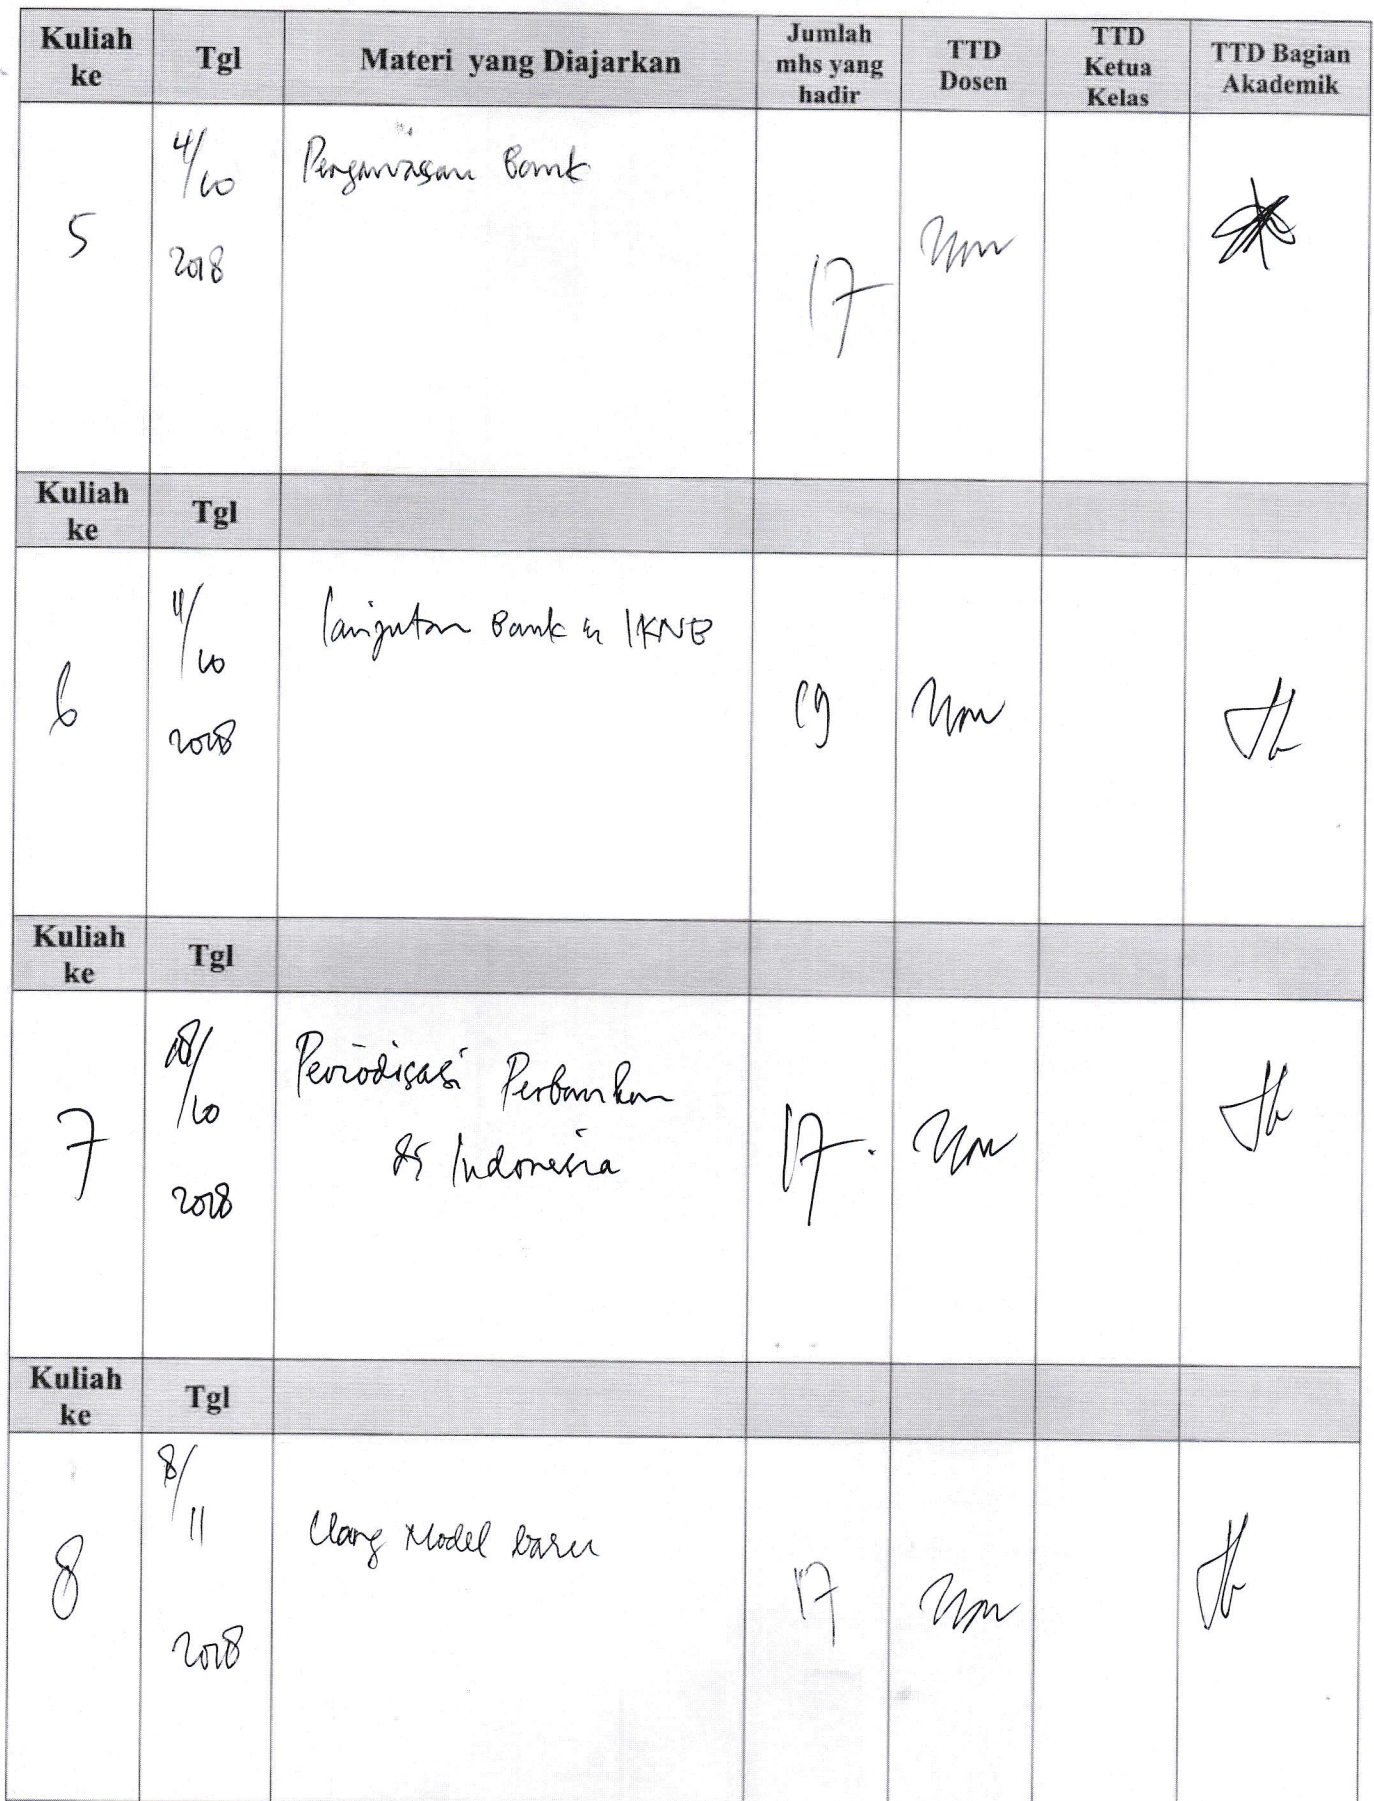 Kuliah ke Tgl Materi yang Diajarkan Jumlah mhs yang hadir TTD Dosen TTD Ketua Kelas TTD Bagian Akademik
5 4/10 2018 Pengawasan Bank 17
Kuliah ke Tgl
6 11/10 2018 lanjutan Bank & IKNB 19
Kuliah ke Tgl
7 18/10 2018 Periodisasi Perbankan 17
di Indonesia
Kuliah ke Tgl
8 8/11 2018 Uang Model baru 17